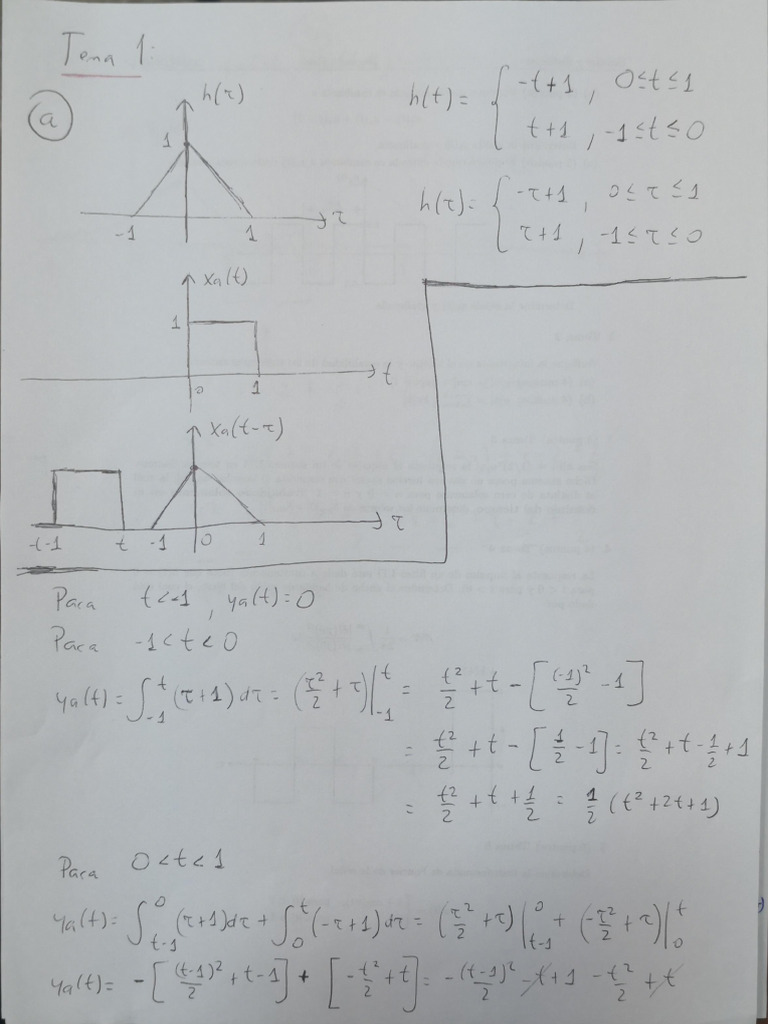 Tema 1:
a
h(τ)
1
-1 1 τ
h(t)= { -t+1 , 0≤t≤1
t+1 , -1≤t≤0
h(τ)= { -τ+1 , 0≤τ≤1
τ+1 , -1≤τ≤0
xa(t)
1
0 1 t
xa(t-τ)
-t-1 t -1 0 1 τ
Para t<-1 , ya(t)=0
Para -1<t<0
ya(t)= ∫_{-1}^{t} (τ+1) dτ = (τ²/2 + τ)|_{-1}^{t} = t²/2 + t - [(-1)²/2 - 1]
= t²/2 + t - [1/2 - 1] = t²/2 + t - 1/2 + 1
= t²/2 + t + 1/2 = 1/2 (t² + 2t + 1)
Para 0<t<1
ya(t)= ∫_{t-1}^{0} (τ+1)dτ + ∫_{0}^{t} (-τ+1) dτ = (τ²/2 + τ)|_{t-1}^{0} + (-τ²/2 + τ)|_{0}^{t}
ya(t)= -[(t-1)²/2 + t-1] + [-t²/2 + t] = -(t-1)²/2 - t + 1 - t²/2 + t